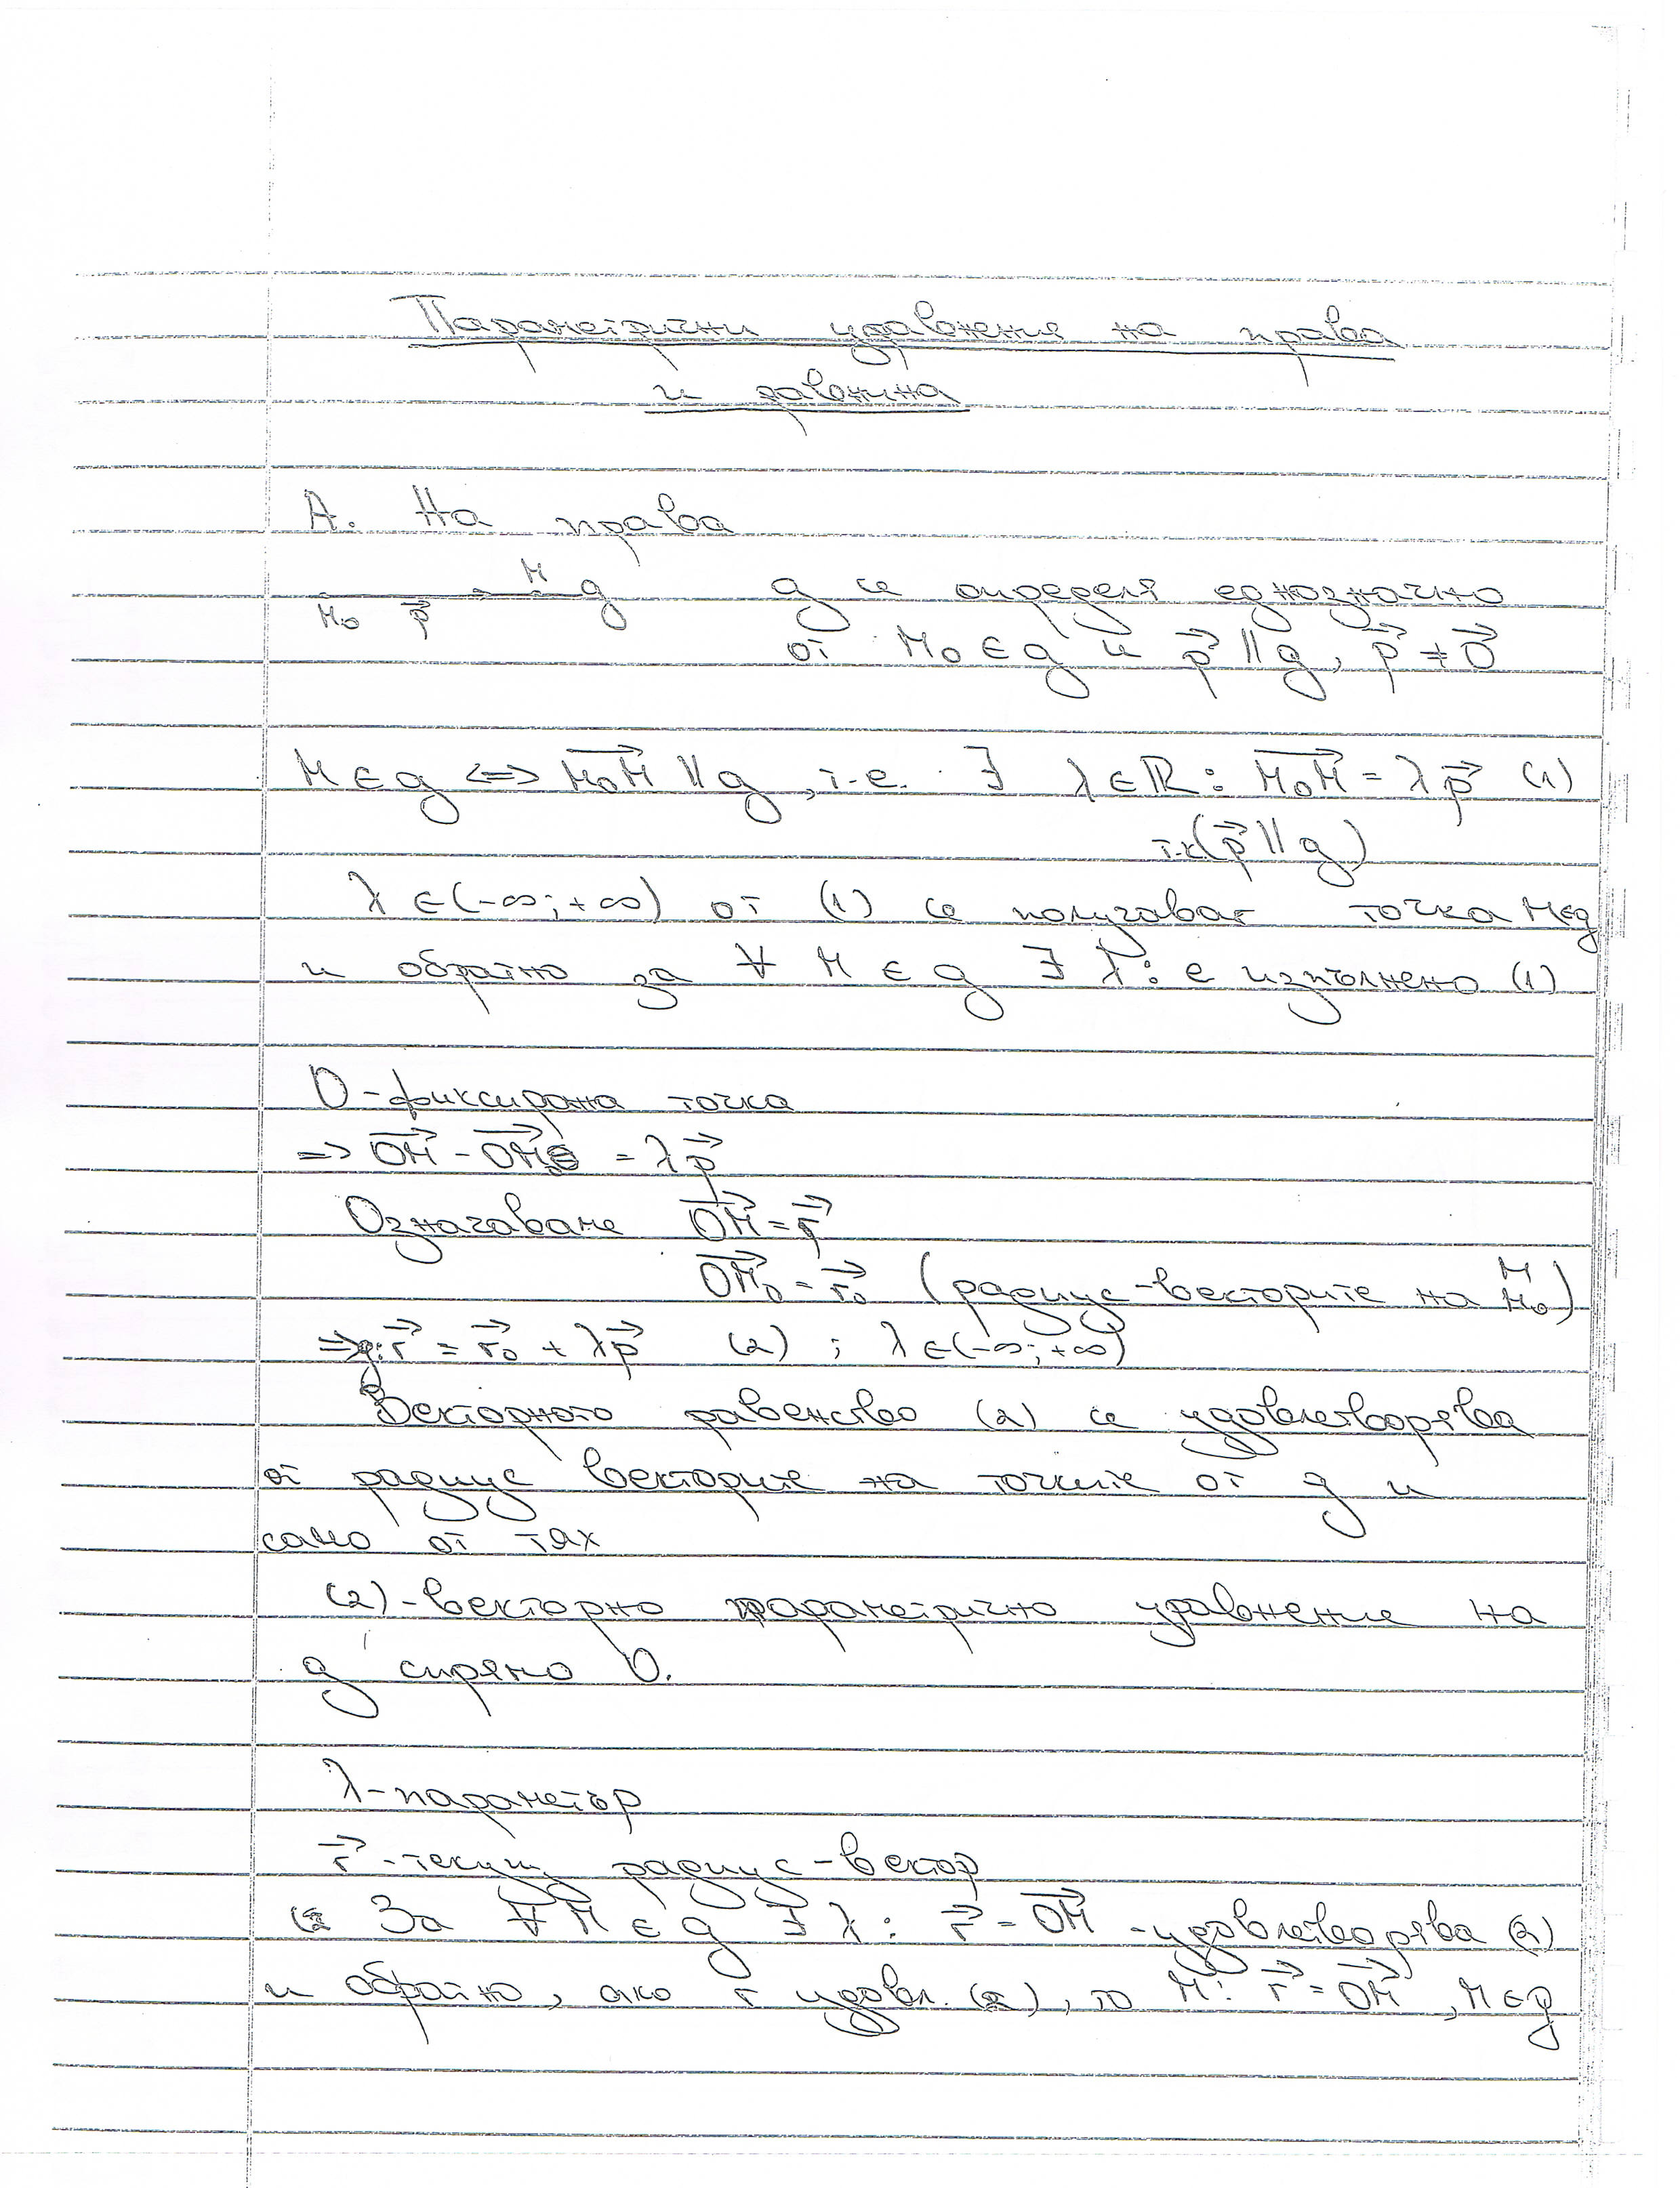 Параметрични уравнения на права
и равнина
А. На права
M₀ p⃗ M g g се определя еднозначно
от M₀ ∈ g и p⃗ ∥ g, p⃗ ≠ 0⃗
M ∈ g <=> M₀M⃗ ∥ g, т.е. ∃ λ ∈ ℝ : M₀M⃗ = λp⃗ (1)
т.к. (p⃗ ∥ g)
λ ∈ (-∞; +∞) от (1) се получават точка M∈g
и обратно за ∀ M ∈ g ∃ λ: е изпълнено (1)
O - фиксирана точка
=> OM⃗ - OM₀⃗ = λp⃗
Означаваме OM⃗ = r⃗
OM₀⃗ = r₀⃗ (радиус-векторите на M M₀)
=> g: r⃗ = r₀⃗ + λp⃗ (2) ; λ ∈ (-∞; +∞)
Векторното равенство (2) се удовлетворява
от радиус векторите на точките от g и
само от тях
(2) - векторно параметрично уравнение на
g спрямо O.
λ - параметър
r⃗ - текущ радиус-вектор
За ∀ M ∈ g ∃ λ: r⃗ = OM⃗ - удовлетворява (2)
и обратно, ако r удовл. (2), то M: r⃗ = OM⃗, M ∈ g